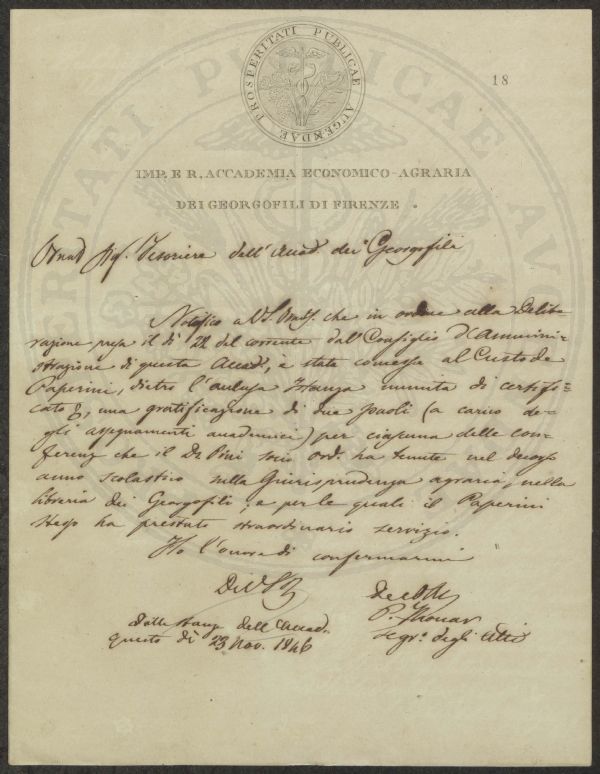 PROSPERITATI PUBLICAE AUGENDAE
18
IMP. E R. ACCADEMIA ECONOMICO-AGRARIA
DEI GEORGOFILI DI FIRENZE.
Sig. Tesoriere dell'Accad. dei Georgofili
Notifico a VS. che in ordine alla Delibe-
razione presa il dì 22 del corrente dal Consiglio d'Ammini-
strazione di questa Accad., è stata comessa al Custode
Paperini, dietro l'aclusa Istanza munita di certifi-
cato, una gratificazione di due paoli (a carico de-
gli assegnamenti accademici) per ciascuna delle con-
ferenze che il Dr. Pini socio ord. ha tenute nel decorso
anno scolastico sulla Giurisprudenza agraria, nella
libreria dei Georgofili, e per le quali il Paperini
stesso ha prestato straordinario servizio.
Ho l'onore di confermarmi
Di VS
P. Thouar
Dalle stanze dell'Accad.
questo dì 23 Nov. 1846
Segr.o degli Atti